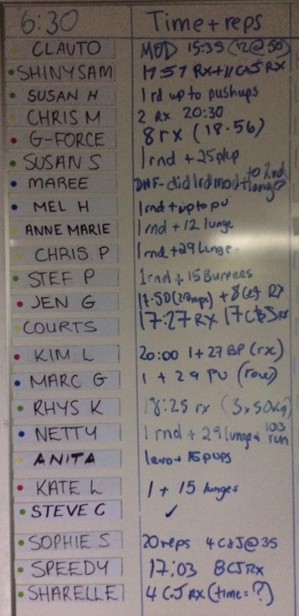 6:30 Time + reps
CLAUTO MOD 15:35 (12@50)
SHINYSAM 17:57 RX + 11 C&J RX
SUSAN H 1 rd up to pushups
CHRIS M 2 RX 20:30
G-FORCE 8 rx (18.56)
SUSAN S 1 rnd + 25 p/up
MAREE DNF - did 1 rd mod + to 2nd lunge
MEL H 1 rnd + up to pu
ANNE MARIE 1 rnd + 12 lunge
CHRIS. P 1 rnd + 29 Lunge.
STEF P 1 rnd + 15 Burpees
JEN G 17:50 + 8 C&J RX
COURTS 17:27 RX 17 C&J RX
KIM L 20:00 1 + 27 BP (rx)
MARC G 1 + 29 PU (row)
RHYS K 18:25 rx (3x50kg)
NETTY 1 rnd + 29 lunges run
ANITA + 15 pups
KATE L 1 + 15 lunges
STEVE C ✓
SOPHIE S 20 reps 4 C&J @ 35
SPEEDY 17:03 8 CJ RX
SHARELLE 4 C&J RX (time = ?)